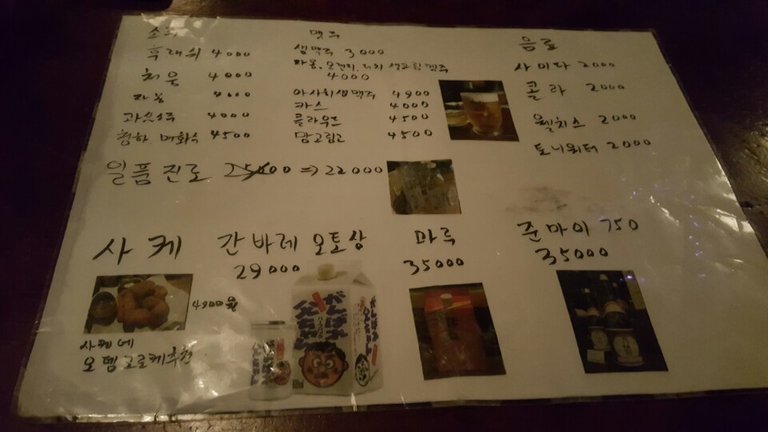 소주
후래쉬 4000
처음 4000
자몽 4000
과일소주 4000
청하 매화수 4500
맥주
생맥주 3000
자몽, 오렌지, 리치 생과일맥주
4000
아사히생맥주 4900
카스 4000
클라우드 4500
망고링고 4500
음료
사이다 2000
콜라 2000
웰치스 2000
토니워터 2000
일품진로 25000 ⇒ 22000
사케
4900원
사케에
오뎅고로케추천
간바레 오토상
29000
がんばれ
父ちゃん
마루
35000
준마이 750
35000